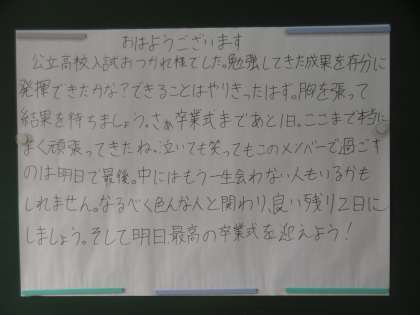 おはようございます
公立高校入試おつかれ様でした。勉強してきた成果を存分に
発揮できたかな？できることはやりきったはず。胸を張って
結果を待ちましょう。さぁ卒業式まであと1日。ここまで本当に
よく頑張ってきたね。泣いても笑ってもこのメンバーで過ごす
のは明日で最後。中にはもう一生会わない人もいるかも
しれません。なるべく色んな人と関わり、良い残り2日に
しましょう。そして明日、最高の卒業式を迎えよう！